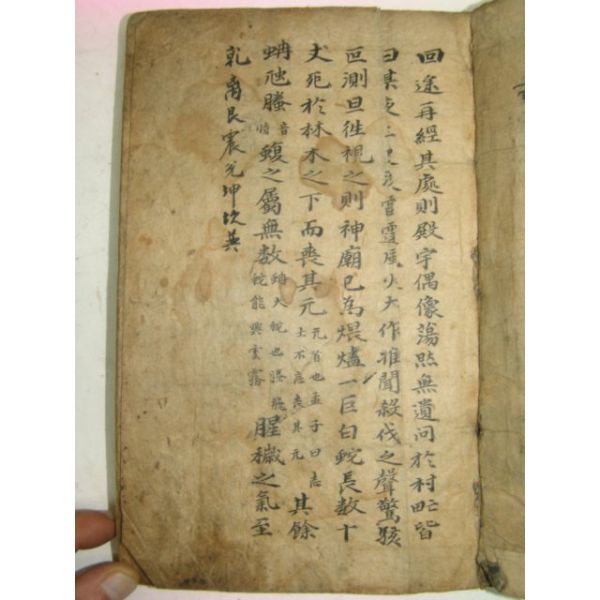 回途再經其處則殿宇偶像蕩然無遺問於村甿皆
曰某夜三更後雷霆風火大作惟聞殺伐之聲驚駭
叵測旦往視之則神廟已為煨燼一巨白蛇長数十
丈死於林木之下而喪其元
元首也孟子曰志
士不忘喪其元
其餘
蚺虺螣
音
蝮之屬無数
蚺大蛇也螣飛
蛇能興雲霧
腥穢之氣至
乾离艮震兌坤坎